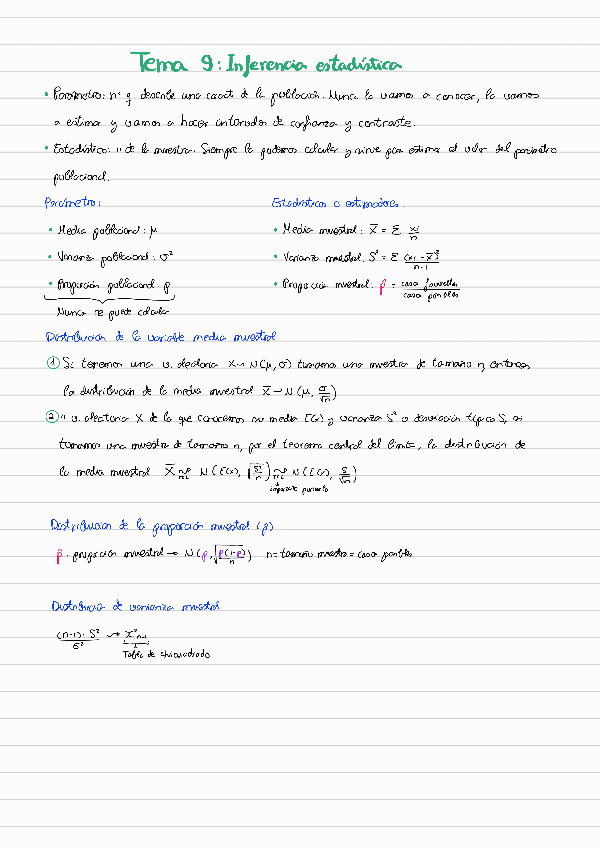 Tema 9: Inferencia estadística
• Parámetro: nº q describe una caract de la población. Nunca lo vamos a conocer, lo vamos
a estimar y vamos a hacer intervalos de confianza y contraste.
• Estadístico: " de la muestra. Siempre lo podemos calcular y sirve para estimar el valor del parámetro
poblacional.
Parámetro: Estadísticos o estimadores:
• Media poblacional: μ • Media muestral: X̄ = Σ xi/n
• Varianza poblacional: σ² • Varianza muestral: S² = Σ (xi - X̄)²/n-1
• Proporción poblacional: p • Proporción muestral: p̂ = casos favorables/casos posibles
Nunca se puede calcular
Distribución de la variable media muestral
① Si tenemos una v. aleatoria X → N(μ, σ) tomamos una muestra de tamaño n, entonces
la distribución de la media muestral X̄ → N(μ, σ/√n)
② " v. aleatoria X de la que conocemos su media E(x) y varianza S² o desviación típica S, si
tomamos una muestra de tamaño n, por el teorema central del límite, la distribución de
la media muestral X̄ ~ N(E(x), √S²/n) ~ N(E(x), S/√n)
Distribución de la proporción muestral (p̂)
p̂: proporción muestral → N(p, √p(1-p)/n) n = tamaño muestra = casos posibles
Distribución de varianza muestral
(n-1)·S²/σ² → χ²n-1
Tabla de chicuadrado